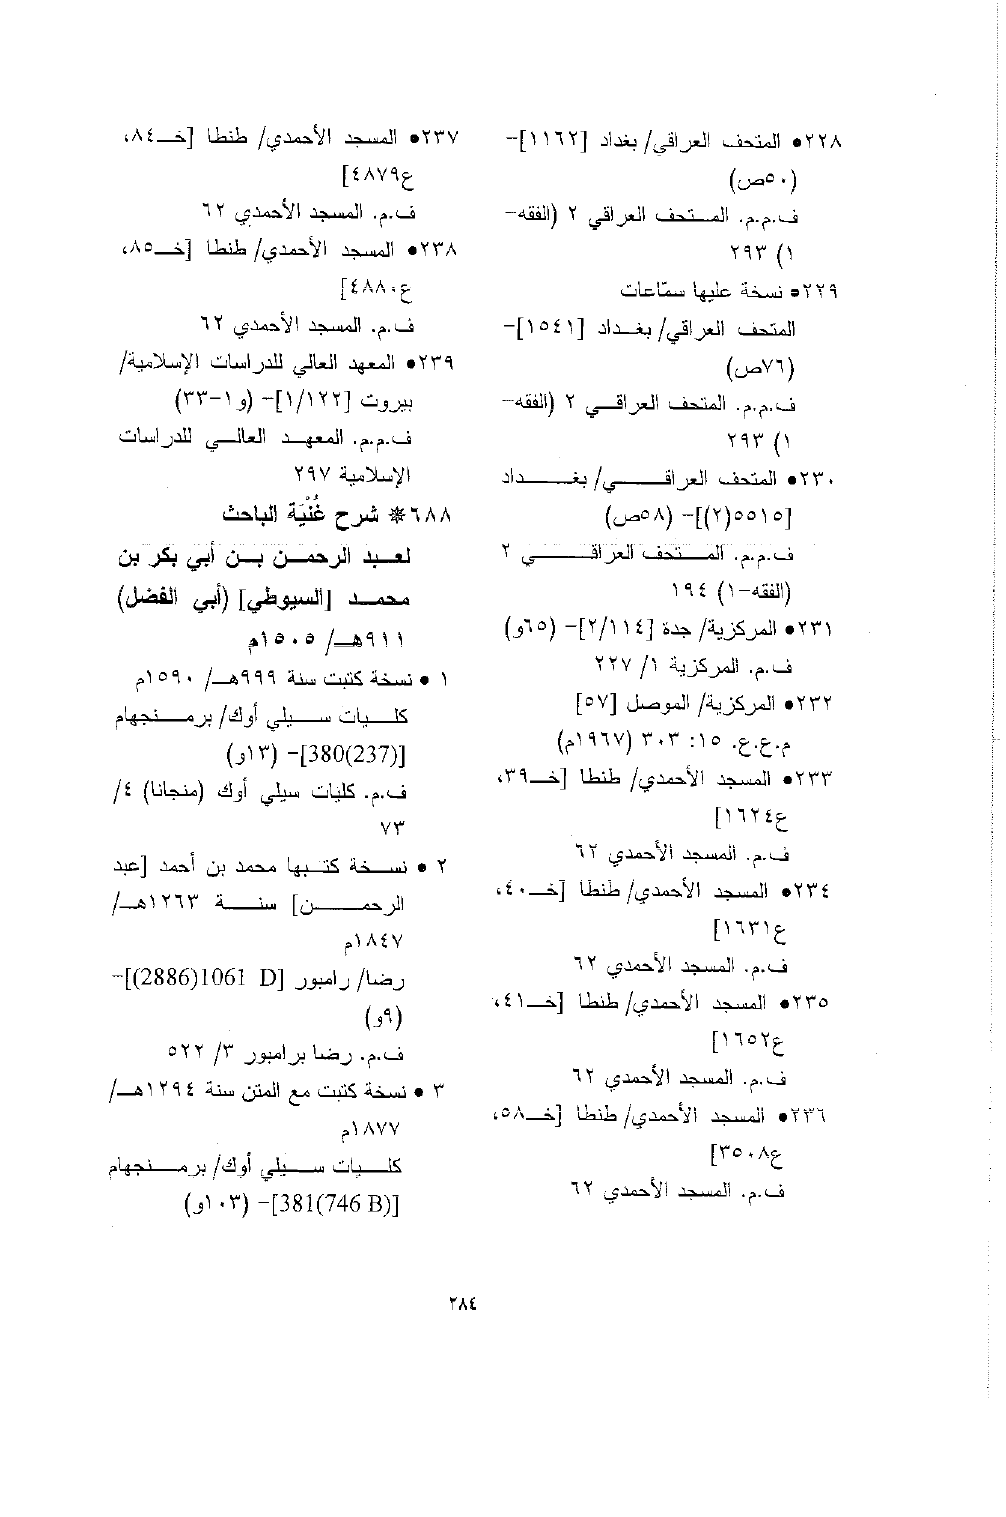 ٢٢٨• المتحف العراقي/ بغداد [١١٦٢]-
(٥٠ص)
ف.م.م. المتحف العراقي ٢ (الفقه-
١) ٢٩٣
٢٢٩• نسخة عليها سمّاعات
المتحف العراقي/ بغداد [١٥٤١]-
(٧٦ص)
ف.م.م. المتحف العراقي ٢ (الفقه-
١) ٢٩٣
٢٣٠• المتحف العراقي/ بغداد
[٥٥١٥(٢)]- (٥٨ص)
ف.م.م. المتحف العراقي ٢
(الفقه-١) ١٩٤
٢٣١• المركزية/ جدة [٢/١١٤]- (٦٥و)
ف.م. المركزية ١/ ٢٢٧
٢٣٢• المركزية/ الموصل [٥٧]
م.ع.ع. ١٥: ٣٠٣ (١٩٦٧م)
٢٣٣• المسجد الأحمدي/ طنطا [خـ٣٩،
ع١٦٢٤]
ف.م. المسجد الأحمدي ٦٢
٢٣٤• المسجد الأحمدي/ طنطا [خـ٤٠،
ع١٦٣١]
ف.م. المسجد الأحمدي ٦٢
٢٣٥• المسجد الأحمدي/ طنطا [خـ٤١،
ع١٦٥٢]
ف.م. المسجد الأحمدي ٦٢
٢٣٦• المسجد الأحمدي/ طنطا [خـ٥٨،
ع٣٥٠٨]
ف.م. المسجد الأحمدي ٦٢
٢٣٧• المسجد الأحمدي/ طنطا [خـ٨٤،
ع٤٨٧٩]
ف.م. المسجد الأحمدي ٦٢
٢٣٨• المسجد الأحمدي/ طنطا [خـ٨٥،
ع٤٨٨٠]
ف.م. المسجد الأحمدي ٦٢
٢٣٩• المعهد العالي للدراسات الإسلامية/
بيروت [١/١٢٢]- (و١-٣٣)
ف.م.م. المعهد العالي للدراسات
الإسلامية ٢٩٧
٦٨٨* شرح غُنْيَة الباحث
لعبد الرحمن بن أبي بكر بن
محمد [السيوطي] (أبي الفضل)
٩١١هـ/ ١٥٠٥م
١ • نسخة كتبت سنة ٩٩٩هـ/ ١٥٩٠م
كليات سيلي أوك/ برمنجهام
[380(237)]- (١٣و)
ف.م. كليات سيلي أوك (منجانا) ٤/
٧٣
٢ • نسخة كتبها محمد بن أحمد [عبد
الرحمن] سنة ١٢٦٣هـ/
١٨٤٧م
رضا/ رامبور [1061 D(2886)]-
(٩و)
ف.م. رضا برامبور ٣/ ٥٢٢
٣ • نسخة كتبت مع المتن سنة ١٢٩٤هـ/
١٨٧٧م
كليات سيلي أوك/ برمنجهام
[381(746 B)]- (١٠٣و)
٢٨٤